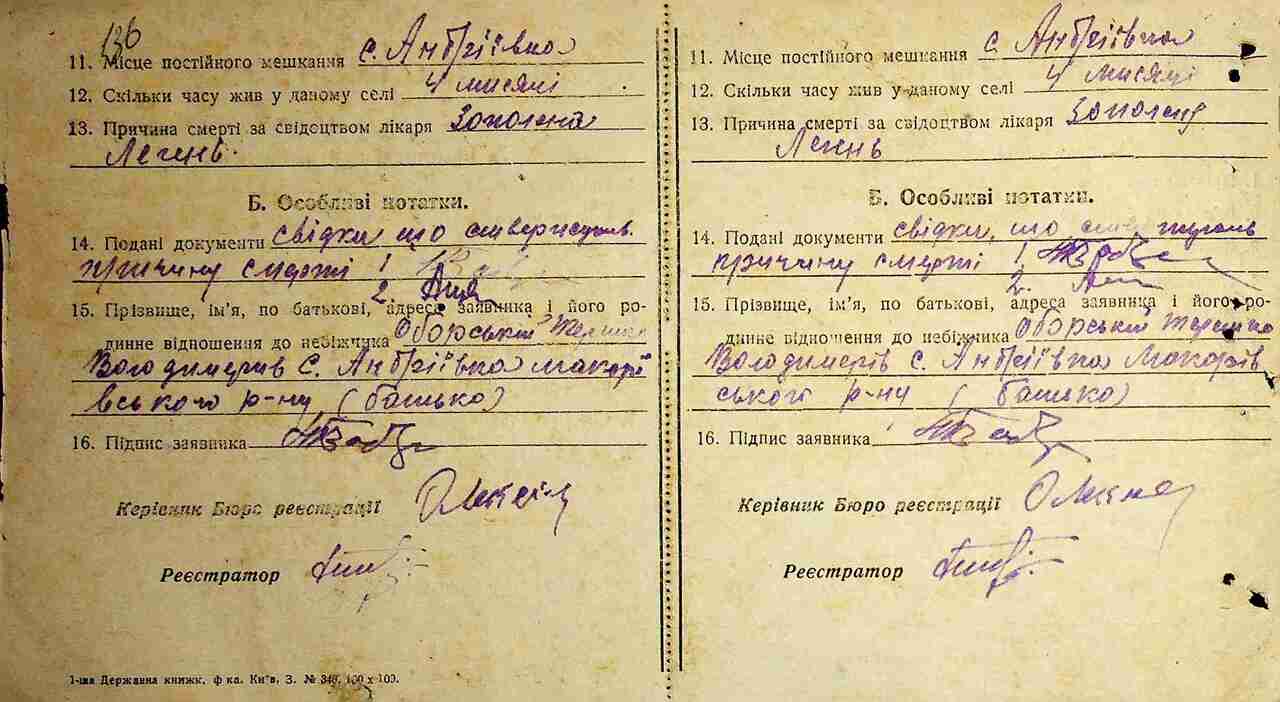 136
11. Місце постійного мешкання с. Андріївка
12. Скільки часу жив у даному селі 4 мисяці
13. Причина смерті за свідоцтвом лікаря Запалена
Легень.
Б. Особливі нотатки.
14. Подані документи свідки що ствержують
причину смерті 1
2.
15. Прізвище, ім'я, по батькові, адреса заявника і його ро-
динне відношення до небіжчика Оборський
Володимерів с. Андріївка Макарі
вського р-ну (батько)
16. Підпис заявника
Керівник Бюро реєстрації
Реєстратор
1-ша Державна книжк. ф-ка. Київ. З. № 340. 100 х 100.
11. Місце постійного мешкання с. Андріївка
12. Скільки часу жив у даному селі 4 мисяці
13. Причина смерті за свідоцтвом лікаря Запалену
Легень
Б. Особливі нотатки.
14. Подані документи свідки, що ствержують
причину смерті 1
2.
15. Прізвище, ім'я, по батькові, адреса заявника і його ро-
динне відношення до небіжчика Оборський
Володимерів с. Андріївка Макарів
ського р-ну (батько)
16. Підпис заявника
Керівник Бюро реєстрації
Реєстратор